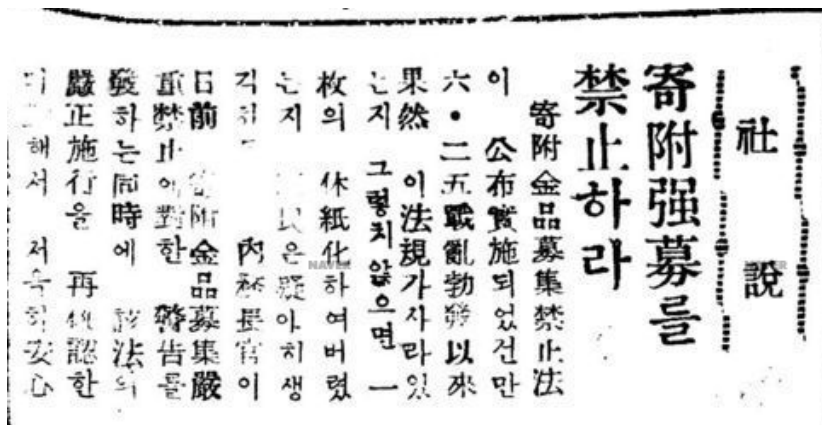 社說
寄附强募를
禁止하라
寄附金品募集禁止法
이 公布實施되었건만
六·二五戰亂勃發以來
果然 이法規가자라있
는지 그렇치않으면 一
枚의 休紙化하여버렸
는지 은疑아히생
각 內務長官이
日前 寄附金品募集嚴
重禁止에對한 警告를
發하는同時에 該法의
嚴正施行을 再 認한
해서 安心
NAVER
NAVER